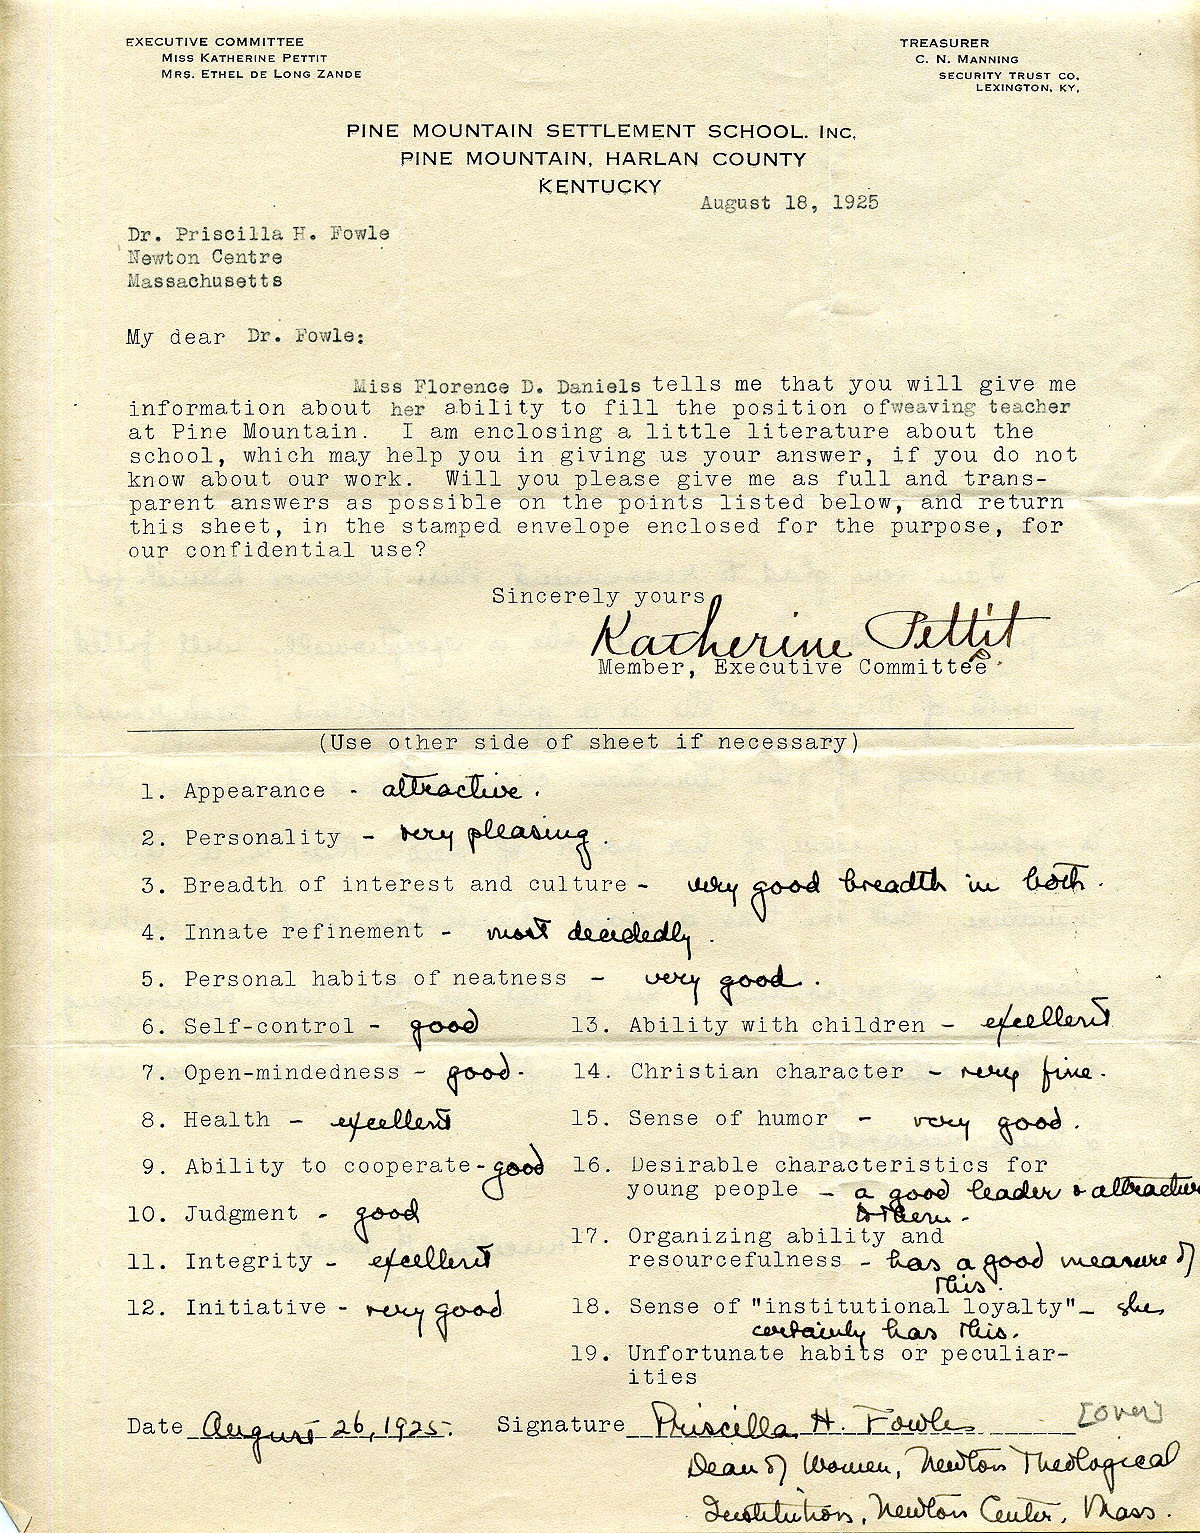 EXECUTIVE COMMITTEE
MISS KATHERINE PETTIT
MRS. ETHEL DE LONG ZANDE
TREASURER
C. N. MANNING
SECURITY TRUST CO.
LEXINGTON, KY.
PINE MOUNTAIN SETTLEMENT SCHOOL. INC.
PINE MOUNTAIN, HARLAN COUNTY
KENTUCKY
August 18, 1925
Dr. Priscilla H. Fowle
Newton Centre
Massachusetts
My dear Dr. Fowle:
Miss Florence D. Daniels tells me that you will give me
information about her ability to fill the position of weaving teacher
at Pine Mountain. I am enclosing a little literature about the
school, which may help you in giving us your answer, if you do not
know about our work. Will you please give me as full and trans-
parent answers as possible on the points listed below, and return
this sheet, in the stamped envelope enclosed for the purpose, for
our confidential use?
Sincerely yours,
Katherine Pettit
P.
Member, Executive Committee
(Use other side of sheet if necessary)
1. Appearance - attractive.
2. Personality - very pleasing.
3. Breadth of interest and culture - very good breadth in both.
4. Innate refinement - most decidedly.
5. Personal habits of neatness - very good.
6. Self-control - good
7. Open-mindedness - good.
8. Health - excellent
9. Ability to cooperate - good
10. Judgment - good
11. Integrity - excellent
12. Initiative - very good
13. Ability with children - excellent
14. Christian character - very fine.
15. Sense of humor - very good.
16. Desirable characteristics for
young people - a good leader & attractive
to them.
17. Organizing ability and
resourcefulness - has a good measure of
this.
18. Sense of "institutional loyalty" - she
certainly has this.
19. Unfortunate habits or peculiar-
ities
Date August 26, 1925. Signature Priscilla H. Fowle [over]
Dean of Women, Newton Theological
Institution, Newton Center, Mass.